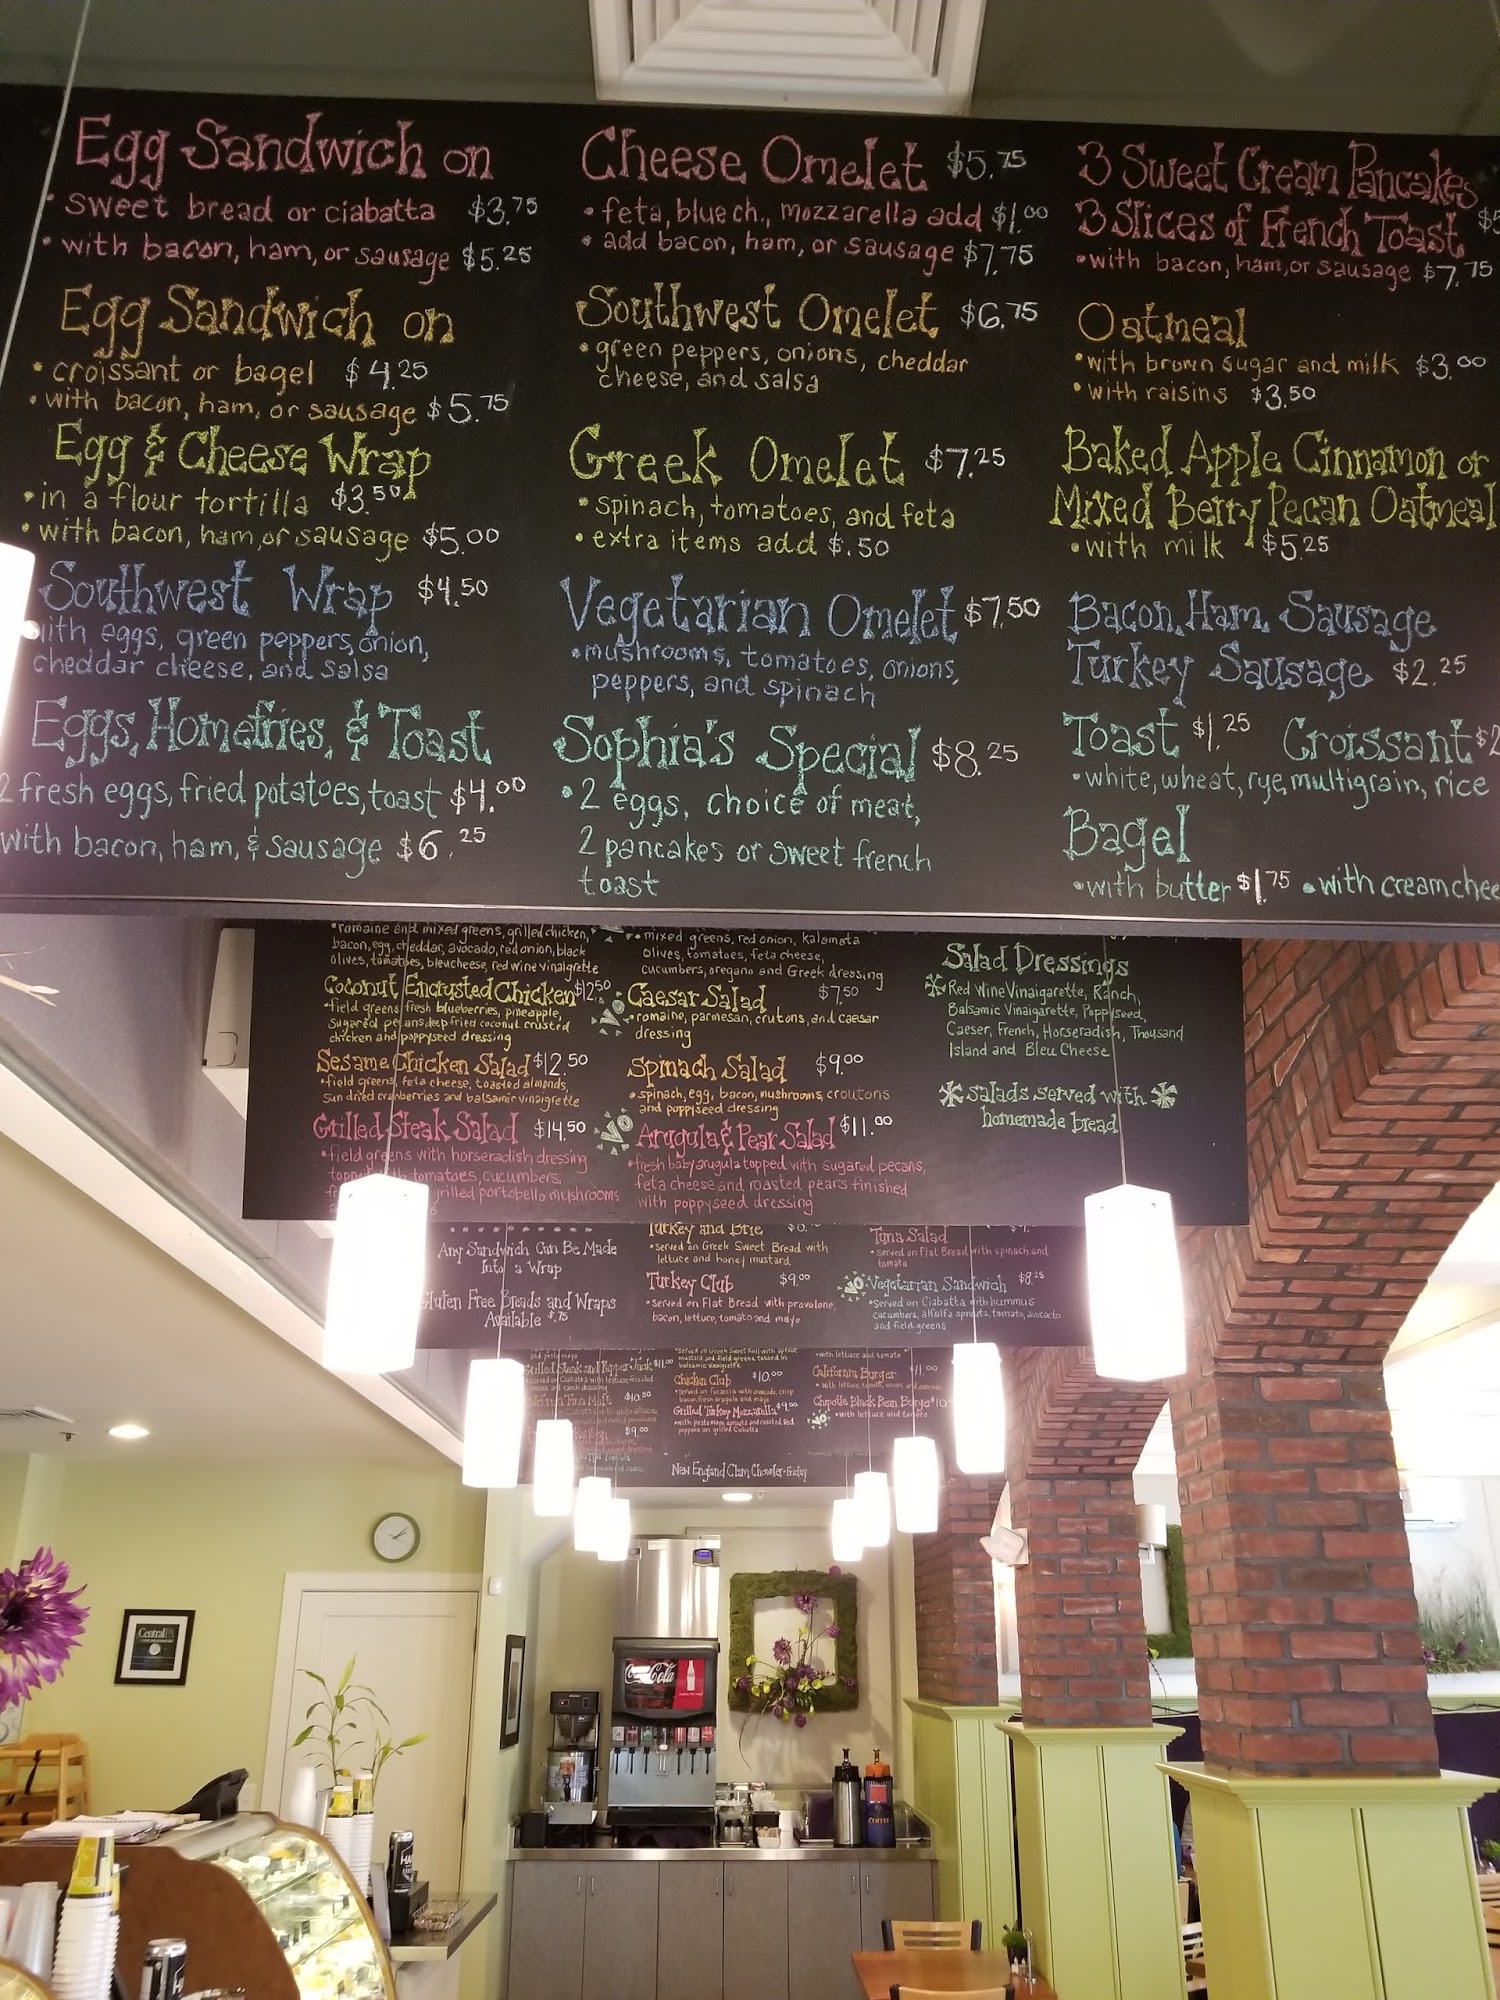 Egg Sandwich on
• sweet bread or ciabatta $3.75
• with bacon, ham, or sausage $5.25
Egg Sandwich on
• croissant or bagel $4.25
• with bacon, ham, or sausage $5.75
Egg & Cheese Wrap
• in a flour tortilla $3.50
• with bacon, ham, or sausage $5.00
Southwest Wrap $4.50
with eggs, green peppers, onion,
cheddar cheese, and salsa
Eggs, Homefries, & Toast
2 fresh eggs, fried potatoes, toast $4.00
with bacon, ham, & sausage $6.25
Cheese Omelet $5.75
• feta, blue ch., mozzarella add $1.00
• add bacon, ham, or sausage $7.75
Southwest Omelet $6.75
• green peppers, onions, cheddar
cheese, and salsa
Greek Omelet $7.25
• spinach, tomatoes, and feta
• extra items add $.50
Vegetarian Omelet $7.50
• mushrooms, tomatoes, onions,
peppers, and spinach
Sophia's Special $8.25
• 2 eggs, choice of meat,
2 pancakes or sweet french
toast
3 Sweet Cream Pancakes
3 Slices of French Toast $5
• with bacon, ham, or sausage $7.75
Oatmeal
• with brown sugar and milk $3.00
• with raisins $3.50
Baked Apple Cinnamon or
Mixed Berry Pecan Oatmeal
• with milk $5.25
Bacon, Ham, Sausage
Turkey Sausage $2.25
Toast $1.25 Croissant $2
• white, wheat, rye, multigrain, rice
Bagel
• with butter $1.75 • with cream chee
• romaine and mixed greens, grilled chicken,
bacon, egg, cheddar, avocado, red onion, black
olives, tomatoes, bleu cheese, red wine vinaigrette
Coconut Encrusted Chicken $12.50
• field greens fresh blueberries, pineapple,
sugared pecans, deep fried coconut crusted
chicken and poppyseed dressing
Sesame Chicken Salad $12.50
• field greens, feta cheese, toasted almonds,
sun dried cranberries and balsamic vinaigrette
Grilled Steak Salad $14.50
• field greens with horseradish dressing
topped with tomatoes, cucumbers,
grilled portobello mushrooms
• mixed greens, red onion, kalamata
olives, tomatoes, feta cheese,
cucumbers, oregano and Greek dressing
VO Caesar Salad $7.50
• romaine, parmesan, crutons, and caesar
dressing
Spinach Salad $9.00
• spinach, egg, bacon, mushrooms, croutons
and poppyseed dressing
VO Arugula & Pear Salad $11.00
• fresh baby arugula topped with sugared pecans,
feta cheese and roasted pears finished
with poppyseed dressing
Salad Dressings
Red Wine Vinaigarette, Ranch,
Balsamic Vinaigarette, Poppyseed,
Caeser, French, Horseradish, Thousand
Island and Bleu Cheese
salads served with
homemade bread
Any Sandwich Can Be Made
Into a Wrap
Gluten Free Breads and Wraps
Available $.75
Turkey and Brie
• served on Greek Sweet Bread with
lettuce and honey mustard
Turkey Club $9.00
• served on Flat Bread with provolone,
bacon, lettuce, tomato and mayo
Tuna Salad
• served on Flat Bread with spinach and
tomato
VO Vegetarian Sandwich $8.25
• served on Ciabatta with hummus
cucumbers, alfalfa sprouts, tomato, avocado
and field greens
Grilled Steak and Pepper Jack $11.00
Tuna Melt $10.50
$9.00
mustard and field greens tossed in
balsamic vinaigrette
Chicken Club $10.00
• served on Focaccia with avocado, crisp
bacon, fresh arugula and mayo
Grilled Turkey Mozzarella $9.00
• with pesto mayo, sprouts and roasted red
peppers on grilled Ciabatta
• with lettuce and tomato
California Burger 11.00
• with lettuce, tomato, onion, and avocado
Chipotle Black Bean Burger $10
VO • with lettuce and tomato
New England Clam Chowder-Friday
CentralPA
Coca-Cola
COFFEE